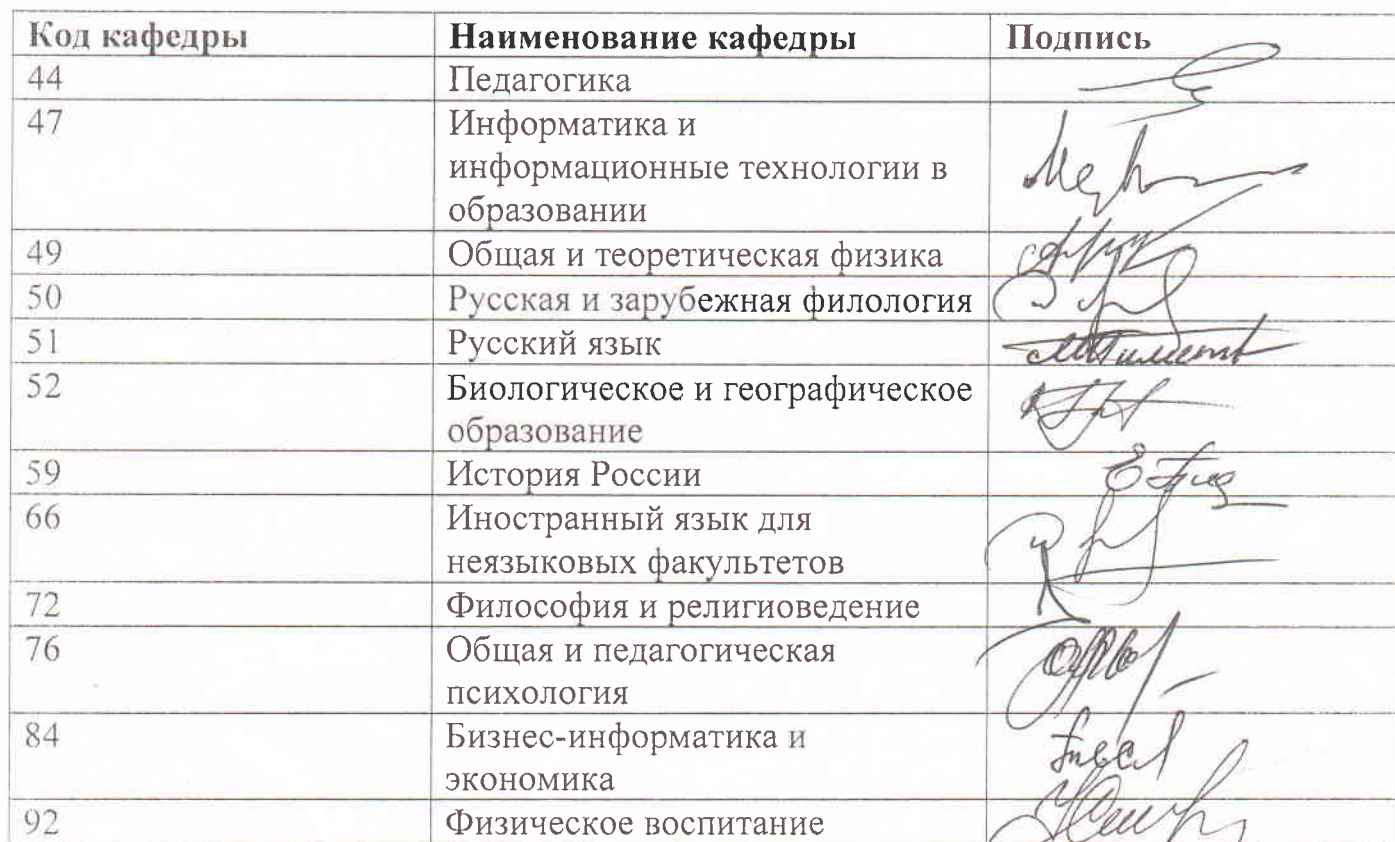 Код кафедры Наименование кафедры Подпись
44 Педагогика
47 Информатика и
информационные технологии в
образовании
49 Общая и теоретическая физика
50 Русская и зарубежная филология
51 Русский язык
52 Биологическое и географическое
образование
59 История России
66 Иностранный язык для
неязыковых факультетов
72 Философия и религиоведение
76 Общая и педагогическая
психология
84 Бизнес-информатика и
экономика
92 Физическое воспитание